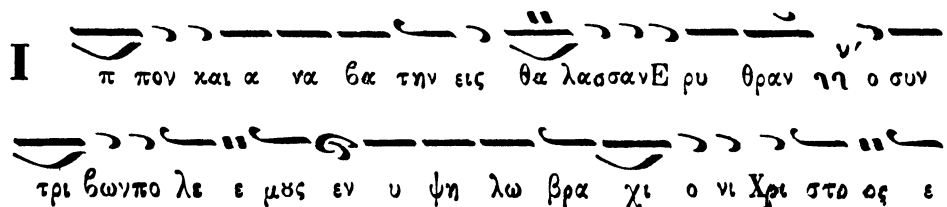 Ι π πον και α να βα την εις θα λασσαν Ε ρυ θραν ν' ο συν
τρι βων πο λε ε μους εν υ ψη λω βρα χι ο νι Χρι στο ος ε